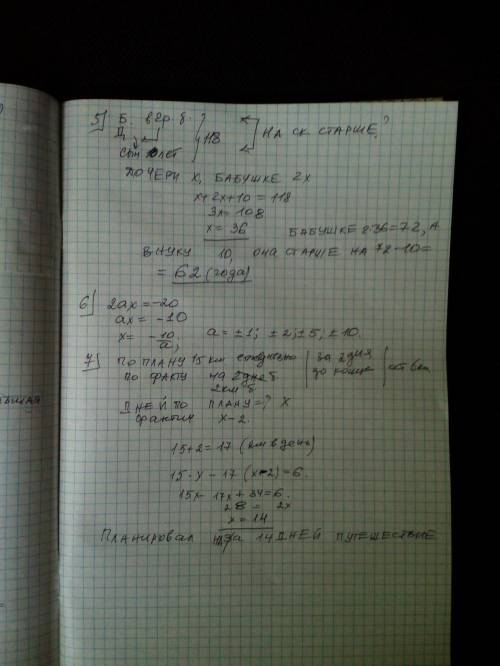 5) Б. в 2р. б. ?
Д.
сын 10 лет } 118 НА СК. СТАРШЕ?
ДОЧЕРИ X, БАБУШКЕ 2x
x+2x+10 = 118
3x = 108
x = 36
БАБУШКЕ 2·36=72, А
ВНУКУ 10, ОНА СТАРШЕ НА 72-10=
= 62 (года)
6) 2ax = -20
ax = -10
x = -10/a; a = ±1; ±2; ±5, ±10.
7) ПО ПЛАНУ 15 км ежедневно | за 2 дня
ПО ФАКТУ на 2 км б.
ДНЕЙ ПО ПЛАНУ = ? X
фактич x-2.
15+2 = 17 (км в день)
15·x - 17(x-2) = 6.
15x - 17x + 34 = 6.
28 = 2x
x = 14
ПЛАНИРОВАЛ за 14 ДНЕЙ ПУТЕШЕСТВИЕ